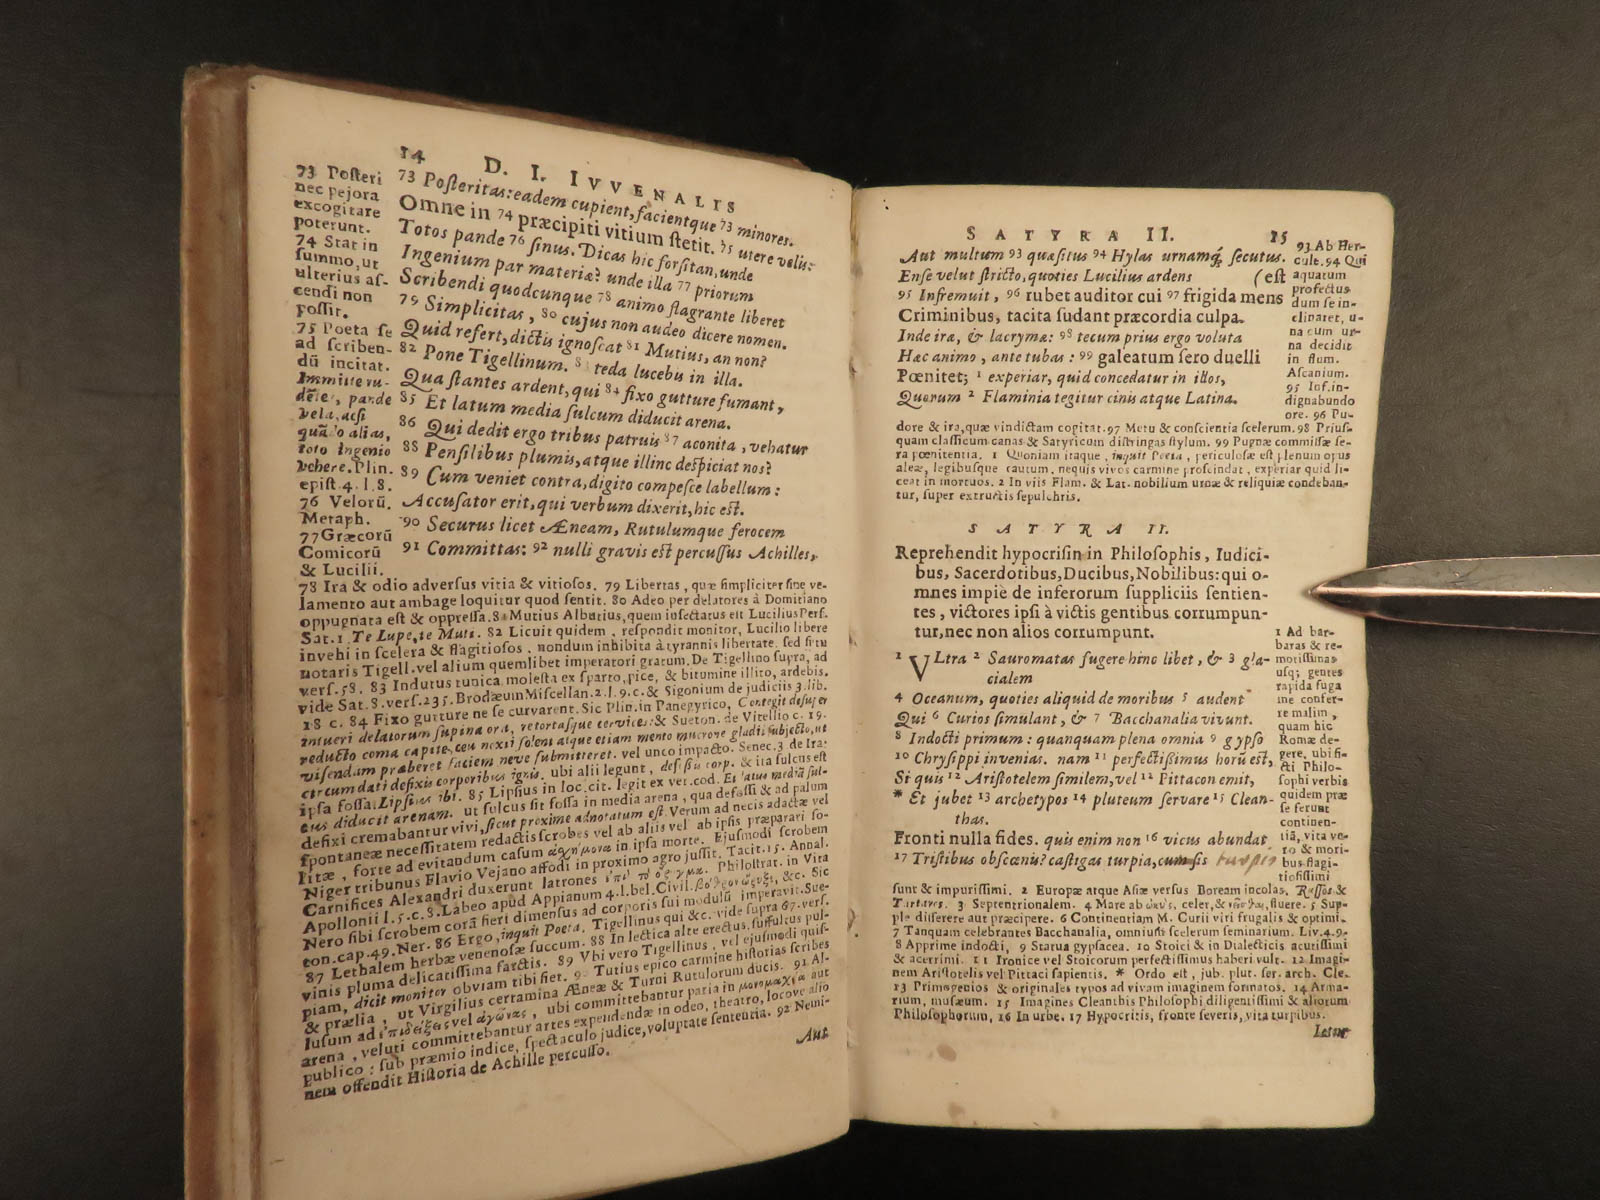 14
D. I. IVVENALIS
73 Posteri
nec pejora
excogitare
poterunt.
74 Stat in
summo, ut
ulterius as-
cendi non
possit.
75 Poeta se
ad scriben-
dū incitat.
Immitte ru-
dēte, pande
vela, acsi
alias,
toto ingenio
vehere. Plin.
epist. 4. l. 8.
76 Velorū.
Metaph.
77 Græcorū
Comicorū
& Lucilii.
73 Posteritas: eadem cupient, facientque 73 minores.
Omne in 74 præcipiti vitium stetit. 75 utere velis:
Totos pande 76 sinus. Dicas hic forsitan, unde
Ingenium par materiæ? unde illa 77 priorum
Scribendi quodcunque 78 animo flagrante liberet
79 Simplicitas, 80 cujus non audeo dicere nomen.
Quid refert, dictis ignoscat 81 Mutius, an non?
82 Pone Tigellinum. 83 teda lucebis in illa.
Qua stantes ardent, qui 84 fixo gutture fumant,
85 Et latum media sulcum diducit arena.
86 Qui dedit ergo tribus patruis 87 aconita, vehatur
88 Pensilibus plumis, atque illinc despiciat nos?
89 Cum veniet contra, digito compesce labellum:
Accusator erit, qui verbum dixerit, hic est.
90 Securus licet Æneam, Rutulumque ferocem
91 Committas: 92 nulli gravis est percussus Achilles,
78 Ira & odio adversus vitia & vitiosos. 79 Libertas, quæ simpliciter sine ve-
lamento aut ambage loquitur quod sentit. 80 Adeo per delatores à Domitiano
oppugnata est & oppressa. 81 Mutius Albutius, quem insectatus est Lucilius Pers.
Sat. 1. Te Lupe, te Muti. 82 Licuit quidem, respondit monitor, Lucilio libere
invehi in scelera & flagitiosos, nondum inhibita à tyrannis libertate, sed si tu
notaris Tigell. vel alium quemlibet imperatori gratum. De Tigellino supra, ad
vers. 58. 83 Indutus tunica molesta ex sparto, pice, & bitumine illito, ardebis.
vide Sat. 8. vers. 235. Brodæum Miscellan. 2. l. 9. c. & Sigonium de judiciis 3. lib.
18 c. 84 Fixo gutture ne se curvarent. Sic Plin. in Panegyrico, Contegit desuper
intueri delatorum supina ora, retortasque cervices: & Sueton. de Vitellio c. 19.
reducto coma capite, ceu noxii solent atque etiam mento mucrone gladii subjecto, ut
visendam præberet faciem neve submitteret. vel unco impacto. Senec. 3 de Ira:
circumdati defixis corporibus ignis. ubi alii legunt, & ita sulcus est
ipsa fossa. Lipsius ibi. 85 Lipsius in loc. cit. legit ex ver. cod. Et latus mediā sul-
cus diducit arenam. ut sulcus sit fossa in media arena, qua defossi & ad palum
defixi cremabantur vivi, sicut proxime adnotatum est. Verum ad necis adactæ vel
spontaneæ necessitatem redactis scrobes vel ab aliis vel ab ipsis præparari so-
litæ, forte ad evitandum casum in ipsa morte. Ejusmodi scrobem
Niger tribunus Flavio Vejano affodi in proximo agro jussit. Tacit. 15. Annal.
Carnifices Alexandri duxerunt latrones Philostrat. in Vita
Apollonii l. 5. c. 8. Labeo apud Appianum 4. l. bel. Civil. &c. Sic
Nero sibi scrobem corā fieri dimensus ad corporis sui modulū imperavit. Sue-
ton. cap. 49. Ner. 86 Ergo, inquit Poeta, Tigellinus qui &c. vide supra 67. vers.
87 Lethalem herbæ venenosæ succum. 88 In lectica alte erectus, suffultus pul-
vinis pluma delicatissima farctis. 89 Vbi vero Tigellinus, vel ejusmodi quis-
piam, dicit monitor obviam tibi fiet. 90 Tutius epico carmine historias scribes
& prælia, ut Virgilius certamina Æneæ & Turni Rutulorum ducis. 91 Al-
lusum ad vel ἀγῶνας, ubi committebantur paria in aut
arena, veluti committebantur artes expendendæ in odeo, theatro, locove alio
publico: sub præmio indice, spectaculo judice, voluptate sententia. 92 Nemi-
nem offendit Historia de Achille percusso.
Aut
SATYRA II.
15
Aut multum 93 quæsitus 94 Hylas urnamq; secutus.
Ense velut stricto, quoties Lucilius ardens (est
95 Infremuit, 96 rubet auditor cui 97 frigida mens
Criminibus, tacita sudant præcordia culpa.
Inde iræ, & lacrymæ: 98 tecum prius ergo voluta
Hæc animo, ante tubas: 99 galeatum sero duelli
Pœnitet; 1 experiar, quid concedatur in illos,
Quorum 2 Flaminia tegitur cinis atque Latina.
93 Ab Her-
cule. 94 Qui
aquatum
profectus
dum se in-
clinaret, u-
na cum ur-
na decidit
in flum.
Ascanium.
95 Inf. in-
dignabundo
ore. 96 Pu-
dore & ira, quæ vindictam cogitat. 97 Metu & conscientia scelerum. 98 Prius-
quam classicum canas & Satyricum distringas stylum. 99 Pugnæ commissæ se-
ra pœnitentia. 1 Quoniam itaque, inquit Poeta, periculosæ est plenum opus
aleæ, legibusque cautum, nequis vivos carmine proscindat, experiar quid li-
ceat in mortuos. 2 In viis Flam. & Lat. nobilium urnæ & reliquiæ condeban-
tur, super extructis sepulchris.
SATYRA II.
Reprehendit hypocrisin in Philosophis, Iudici-
bus, Sacerdotibus, Ducibus, Nobilibus: qui o-
mnes impiè de inferorum suppliciis sentien-
tes, victores ipsi à victis gentibus corrumpun-
tur, nec non alios corrumpunt.
1 VLtra 2 Sauromatas fugere hinc libet, & 3 gla-
cialem
4 Oceanum, quoties aliquid de moribus 5 audent
Qui 6 Curios simulant, & 7 Bacchanalia vivunt.
8 Indocti primum: quanquam plena omnia 9 gypso
10 Chrysippi invenias. nam 11 perfectissimus horū est,
Si quis 12 Aristotelem similem, vel 12 Pittacon emit,
* Et jubet 13 archetypos 14 pluteum servare 15 Clean-
thas.
Fronti nulla fides. quis enim non 16 vicus abundat
17 Tristibus obscœnis? castigas turpia, cum sis turpis
1 Ad bar-
baras & re-
motissimas
usq; gentes
rapida fuga
me confer-
re malim,
quam hic
Romæ de-
gere, ubi fi-
cti Philo-
sophi verbis
quidem præ
se ferunt
continen-
tiā, vita ve-
ro & mori-
bus flagi-
tiosissimi
sunt & impurissimi. 2 Europæ atque Asiæ versus Boream incolas, Russos &
Tartaros. 3 Septentrionalem. 4 Mare ab ὠκύς, celer, & fluere. 5 Sup-
ple disserere aut præcipere. 6 Continentiam M. Curii viri frugalis & optimi.
7 Tanquam celebrantes Bacchanalia, omniusi scelerum seminarium. Liv. 4. 9.
8 Apprime indocti, 9 Statua gypsacea. 10 Stoici & in Dialecticis acutissimi
& acerrimi. 11 Ironice vel Stoicorum perfectissimus haberi vult. 12 Imagi-
nem Aristotelis vel Pittaci sapientis. * Ordo est, jub. plut. ser. arch. Cle.
13 Primogenios & originales typos ad vivam imaginem formatos. 14 Arma-
rium, musæum. 15 Imagines Cleanthis Philosophi diligentissimi & aliorum
Philosophorum, 16 In urbe. 17 Hypocritis, fronte severis, vita turpibus.